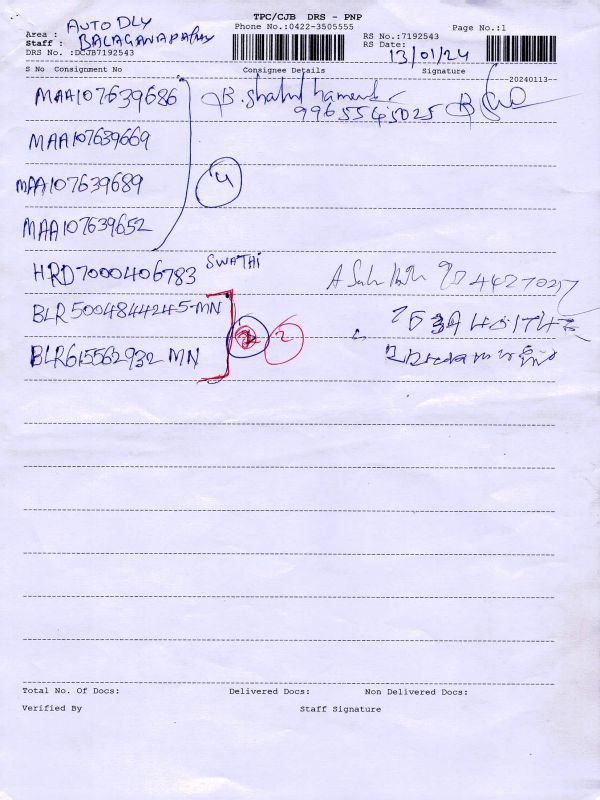 TPC/CJB DRS - PNP
Phone No.:0422-3505555
Page No.:1
Area : AUTO DLY
Staff : BALAGANAPATHY
DRS No. :DCJB7192543
RS No.:7192543
RS Date: 13/01/24
S No Consignment No Consignee Details Signature
20240113
MAA107639686 B. 9965545025
MAA107639669
MAA107639689
4
MAA107639652
HRD7000406783 SWATHI
BLR5004844245-MN
BLR615562932 MN 2
Total No. Of Docs: Delivered Docs: Non Delivered Docs:
Verified By Staff Signature